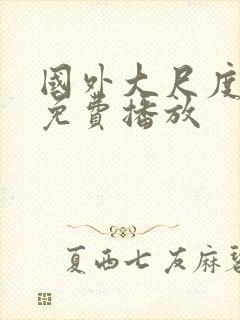 國外大尺度
免費播放
夏西七友麻碧